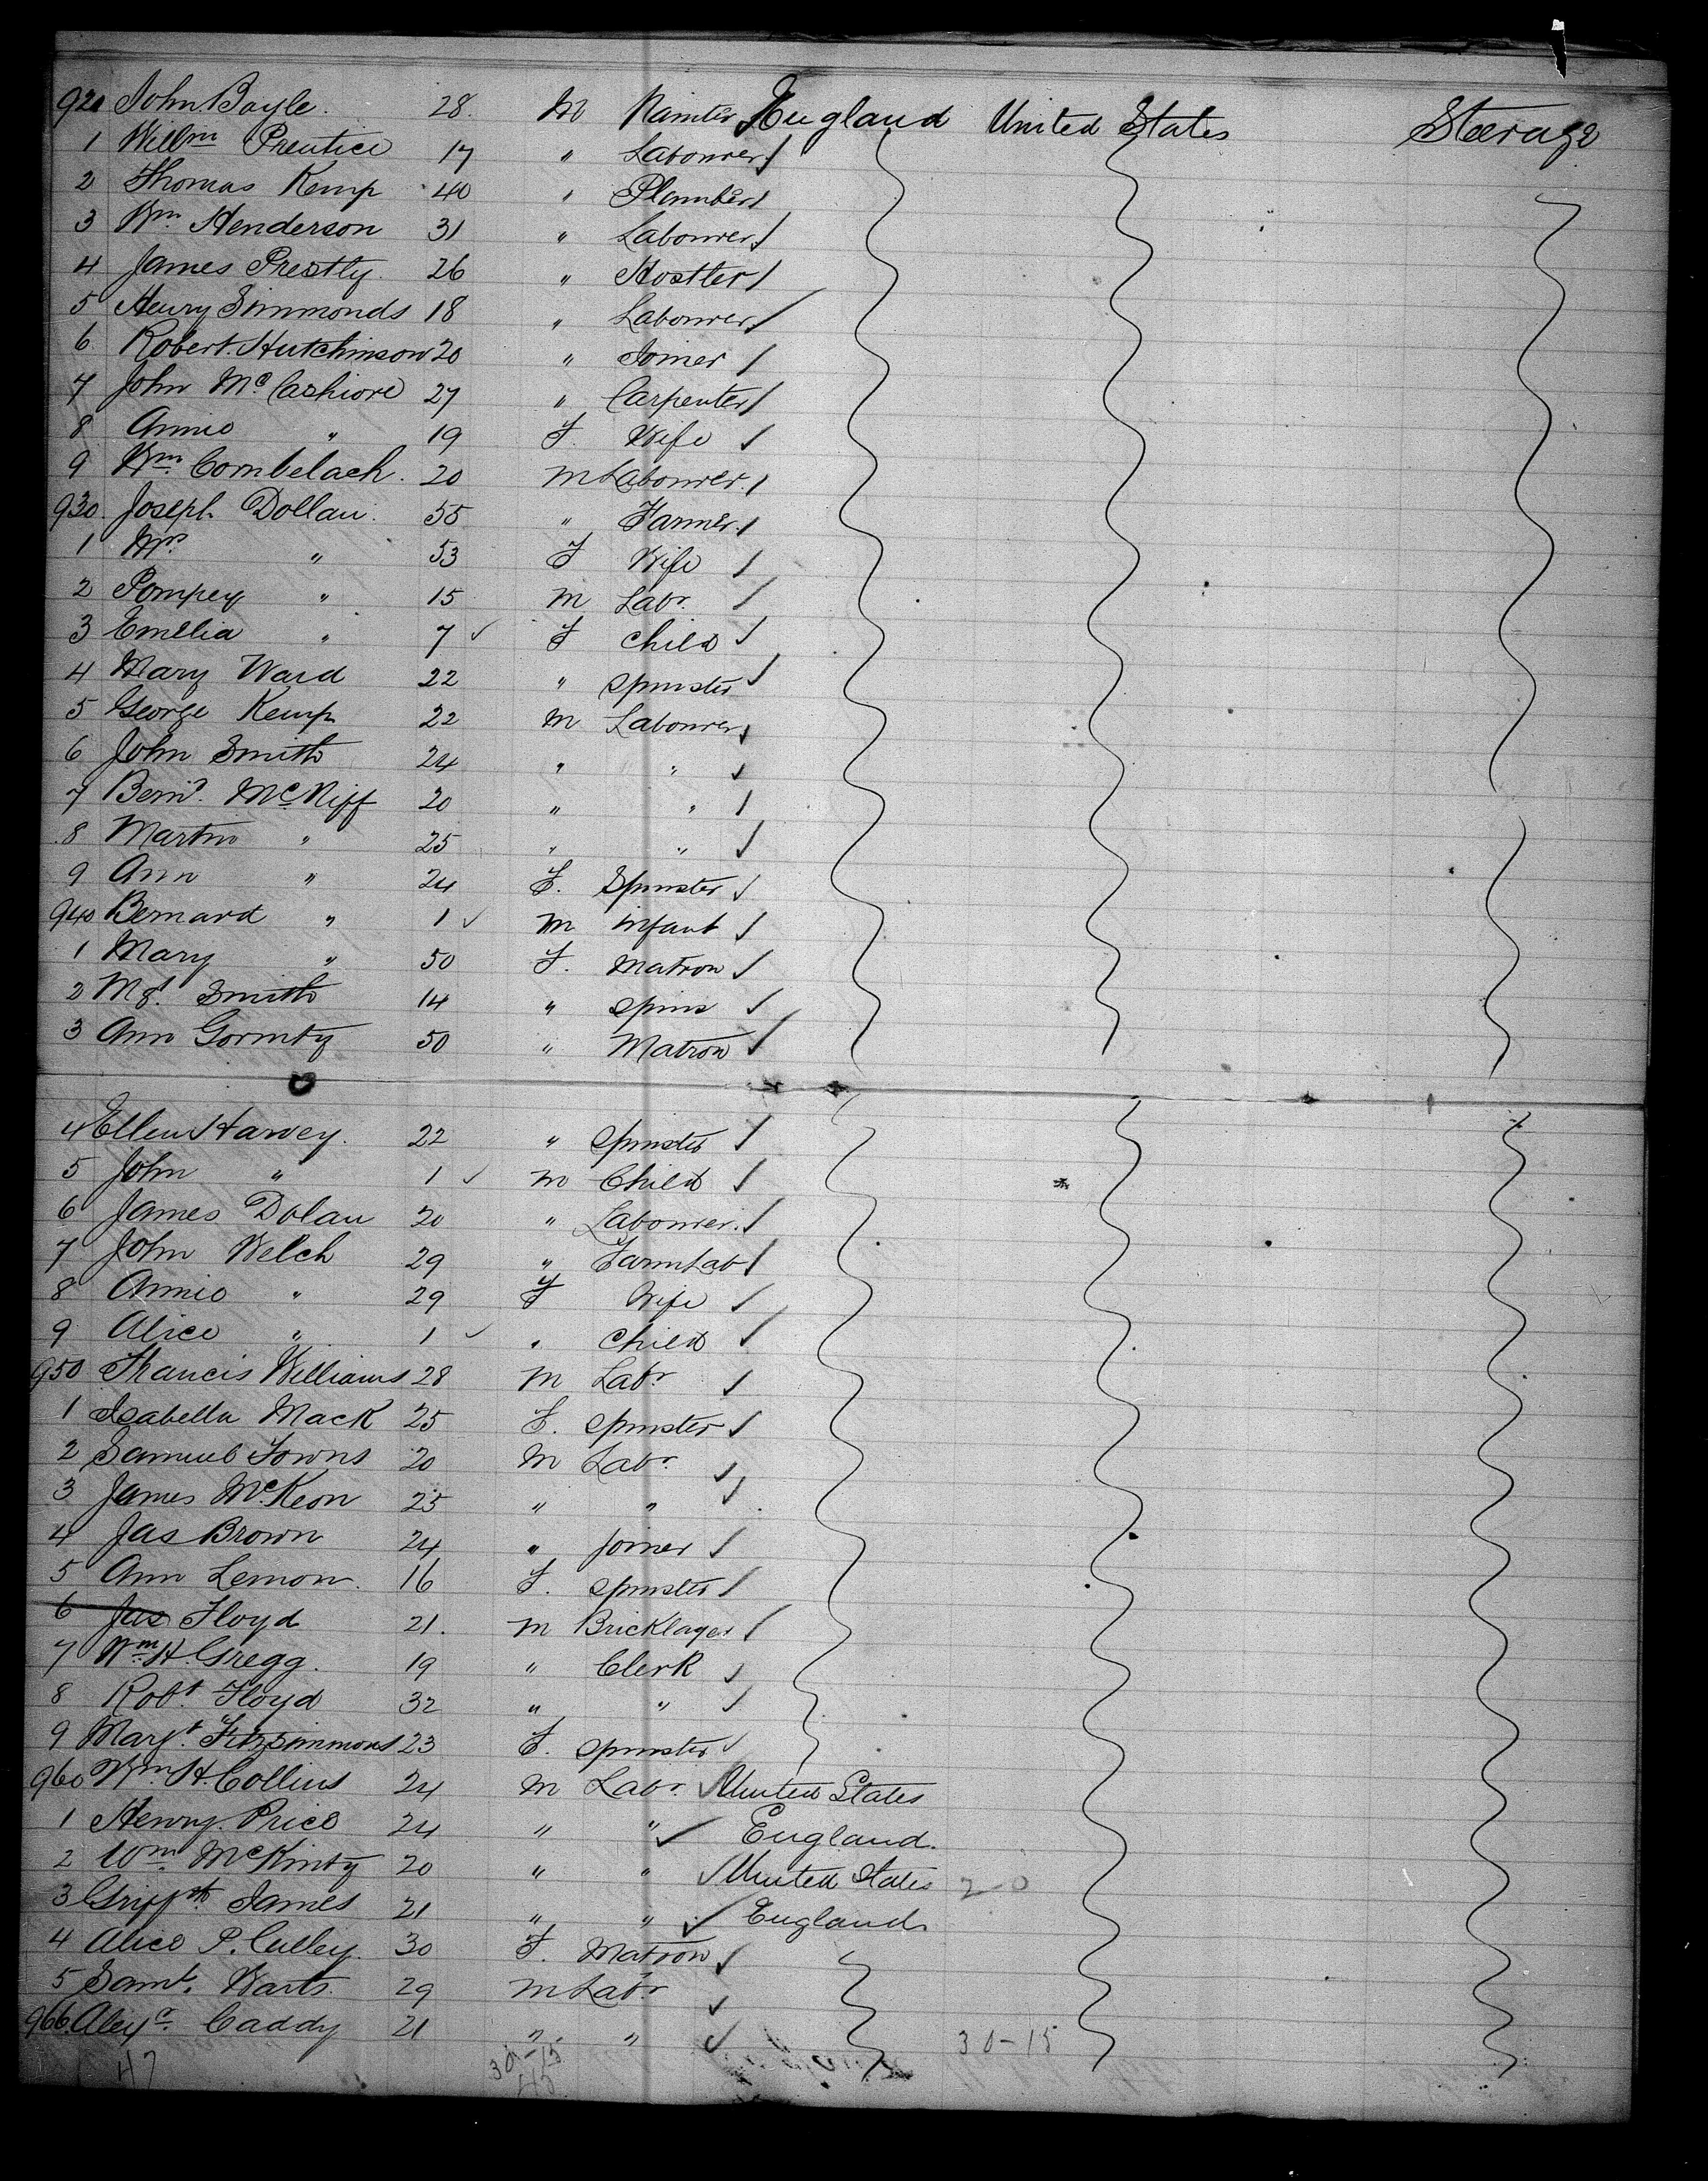 920 John Boyle. 28. M Painter England United States Steerage
1 Willm Prentice 17 " Labourer
2 Thomas Kemp 40 " Plumber
3 Wm. Henderson 31 " Labourer
4 James Prestly. 26 " Hostler
5 Henry Simmonds 18 " Labourer
6 Robert Hutchinson 20 " Joiner
7 John McCashiore 27 " Carpenter
8 Annie " 19 F. Wife
9 Wm. Combelach. 20 M Labourer.
930. Joseph Dollan. 55 " Farmer.
1 Mrs " 53 F Wife
2 Pompey " 15 M Labr.
3 Emelia " 7 F Child
4 Mary Ward 22 " Spinster
5 George Kemp 22 M Labourer
6 John Smith 24 " "
7 Bernd. McNiff 20 " "
8 Martin " 25 " "
9 Ann " 24 F. Spinster
940 Bernard " 1 M infant
1 Mary " 50 F. Matron
2 Mgt. Smith 14 " Spins
3 Ann Gormty 50 " Matron
4 Ellen Harvey. 22 " Spinster
5 John " 1 M Child
6 James Dolan 20 " Labourer.
7 John Welch 29 " Farm Lab
8 Annie " 29 F Wife
9 Alice " 1 " Child
950 Francis Williams 28 M Labr
1 Isabella Mack 25 F. Spinster
2 Samuel Towns 20 M Labr
3 James McKeon 25 " "
4 Jas Brown 24 " Joiner
5 Ann Lemon. 16 F. Spinster
6 Jas Floyd 21. M Bricklayer
7 Wm. H Gregg. 19 " Clerk
8 Robt. Floyd 32 " "
9 Margt. Fitzsimmons 23 F. Spinster
960 Wm. H. Collins 24 M Labr. United States
1 Henry. Price 24 " " England.
2 Wm. McKinty 20 " " United States 20
3 Griffth James 21 " " England.
4 Alice P. Culley. 30 F. Matron
5 Saml. Warts. 29 M Labr
966. Alexr. Caddy 21 " " 30-15
47 30-15
45